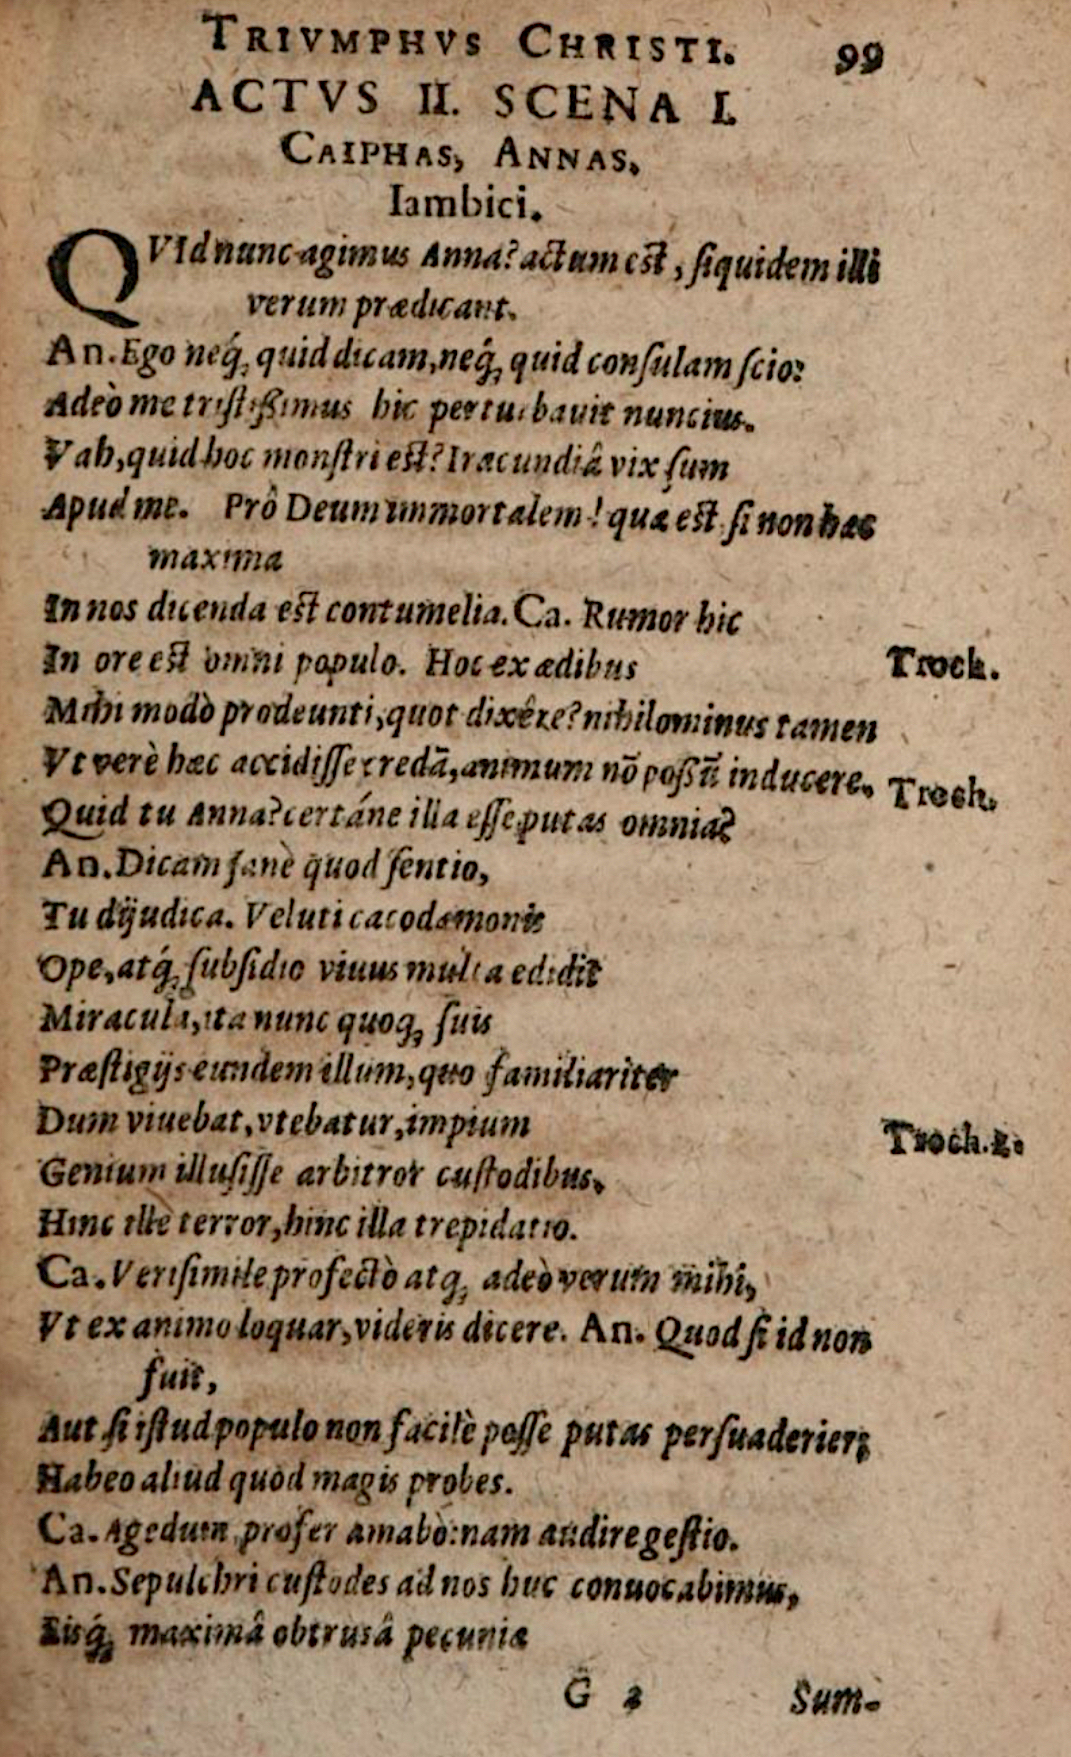 TRIVMPHVS CHRISTI. 99
ACTVS II. SCENA I.
CAIPHAS, ANNAS.
Iambici.
QVId nunc agimus Anna? actum est, siquidem illi
verum prædicant.
An. Ego neq́, quid dicam, neq́, quid consulam scio:
Adeò me tristissimus hic perturbauit nuncius.
Vah, quid hoc monstri est? Iracundiâ vix sum
Apud me. Prô Deum immortalem! quæ est si non hæc
maxima
In nos dicenda est contumelia. Ca. Rumor hic
In ore est omni populo. Hoc ex ædibus Troch.
Mihi modò prodeunti, quot dixêre? nihilominus tamen
Vt verè hæc accidisse credã, animum nõ possũ inducere. Troch.
Quid tu Anna? certáne illa esse putas omnia?
An. Dicam sanè quod sentio,
Tu dijudica. Veluti cacodæmonis
Ope, atq́, subsidio viuus multa edidit
Miracula, ita nunc quoq, suis
Præstigijs eundem illum, quo familiariter
Dum viuebat, vtebatur, impium Troch.2.
Genium illusisse arbitror custodibus,
Hinc ille terror, hinc illa trepidatio.
Ca. Verisimile profectò atq, adeò verum mihi,
Vt ex animo loquar, videris dicere. An. Quod si id non
fuit,
Aut si istud populo non facilè posse putas persuaderier;
Habeo aliud quod magis probes.
Ca. Agedum profer amabò: nam audire gestio.
An. Sepulchri custodes ad nos huc conuocabimus,
Eisq́, maximâ obtrusâ pecunia
G 2 Sum-